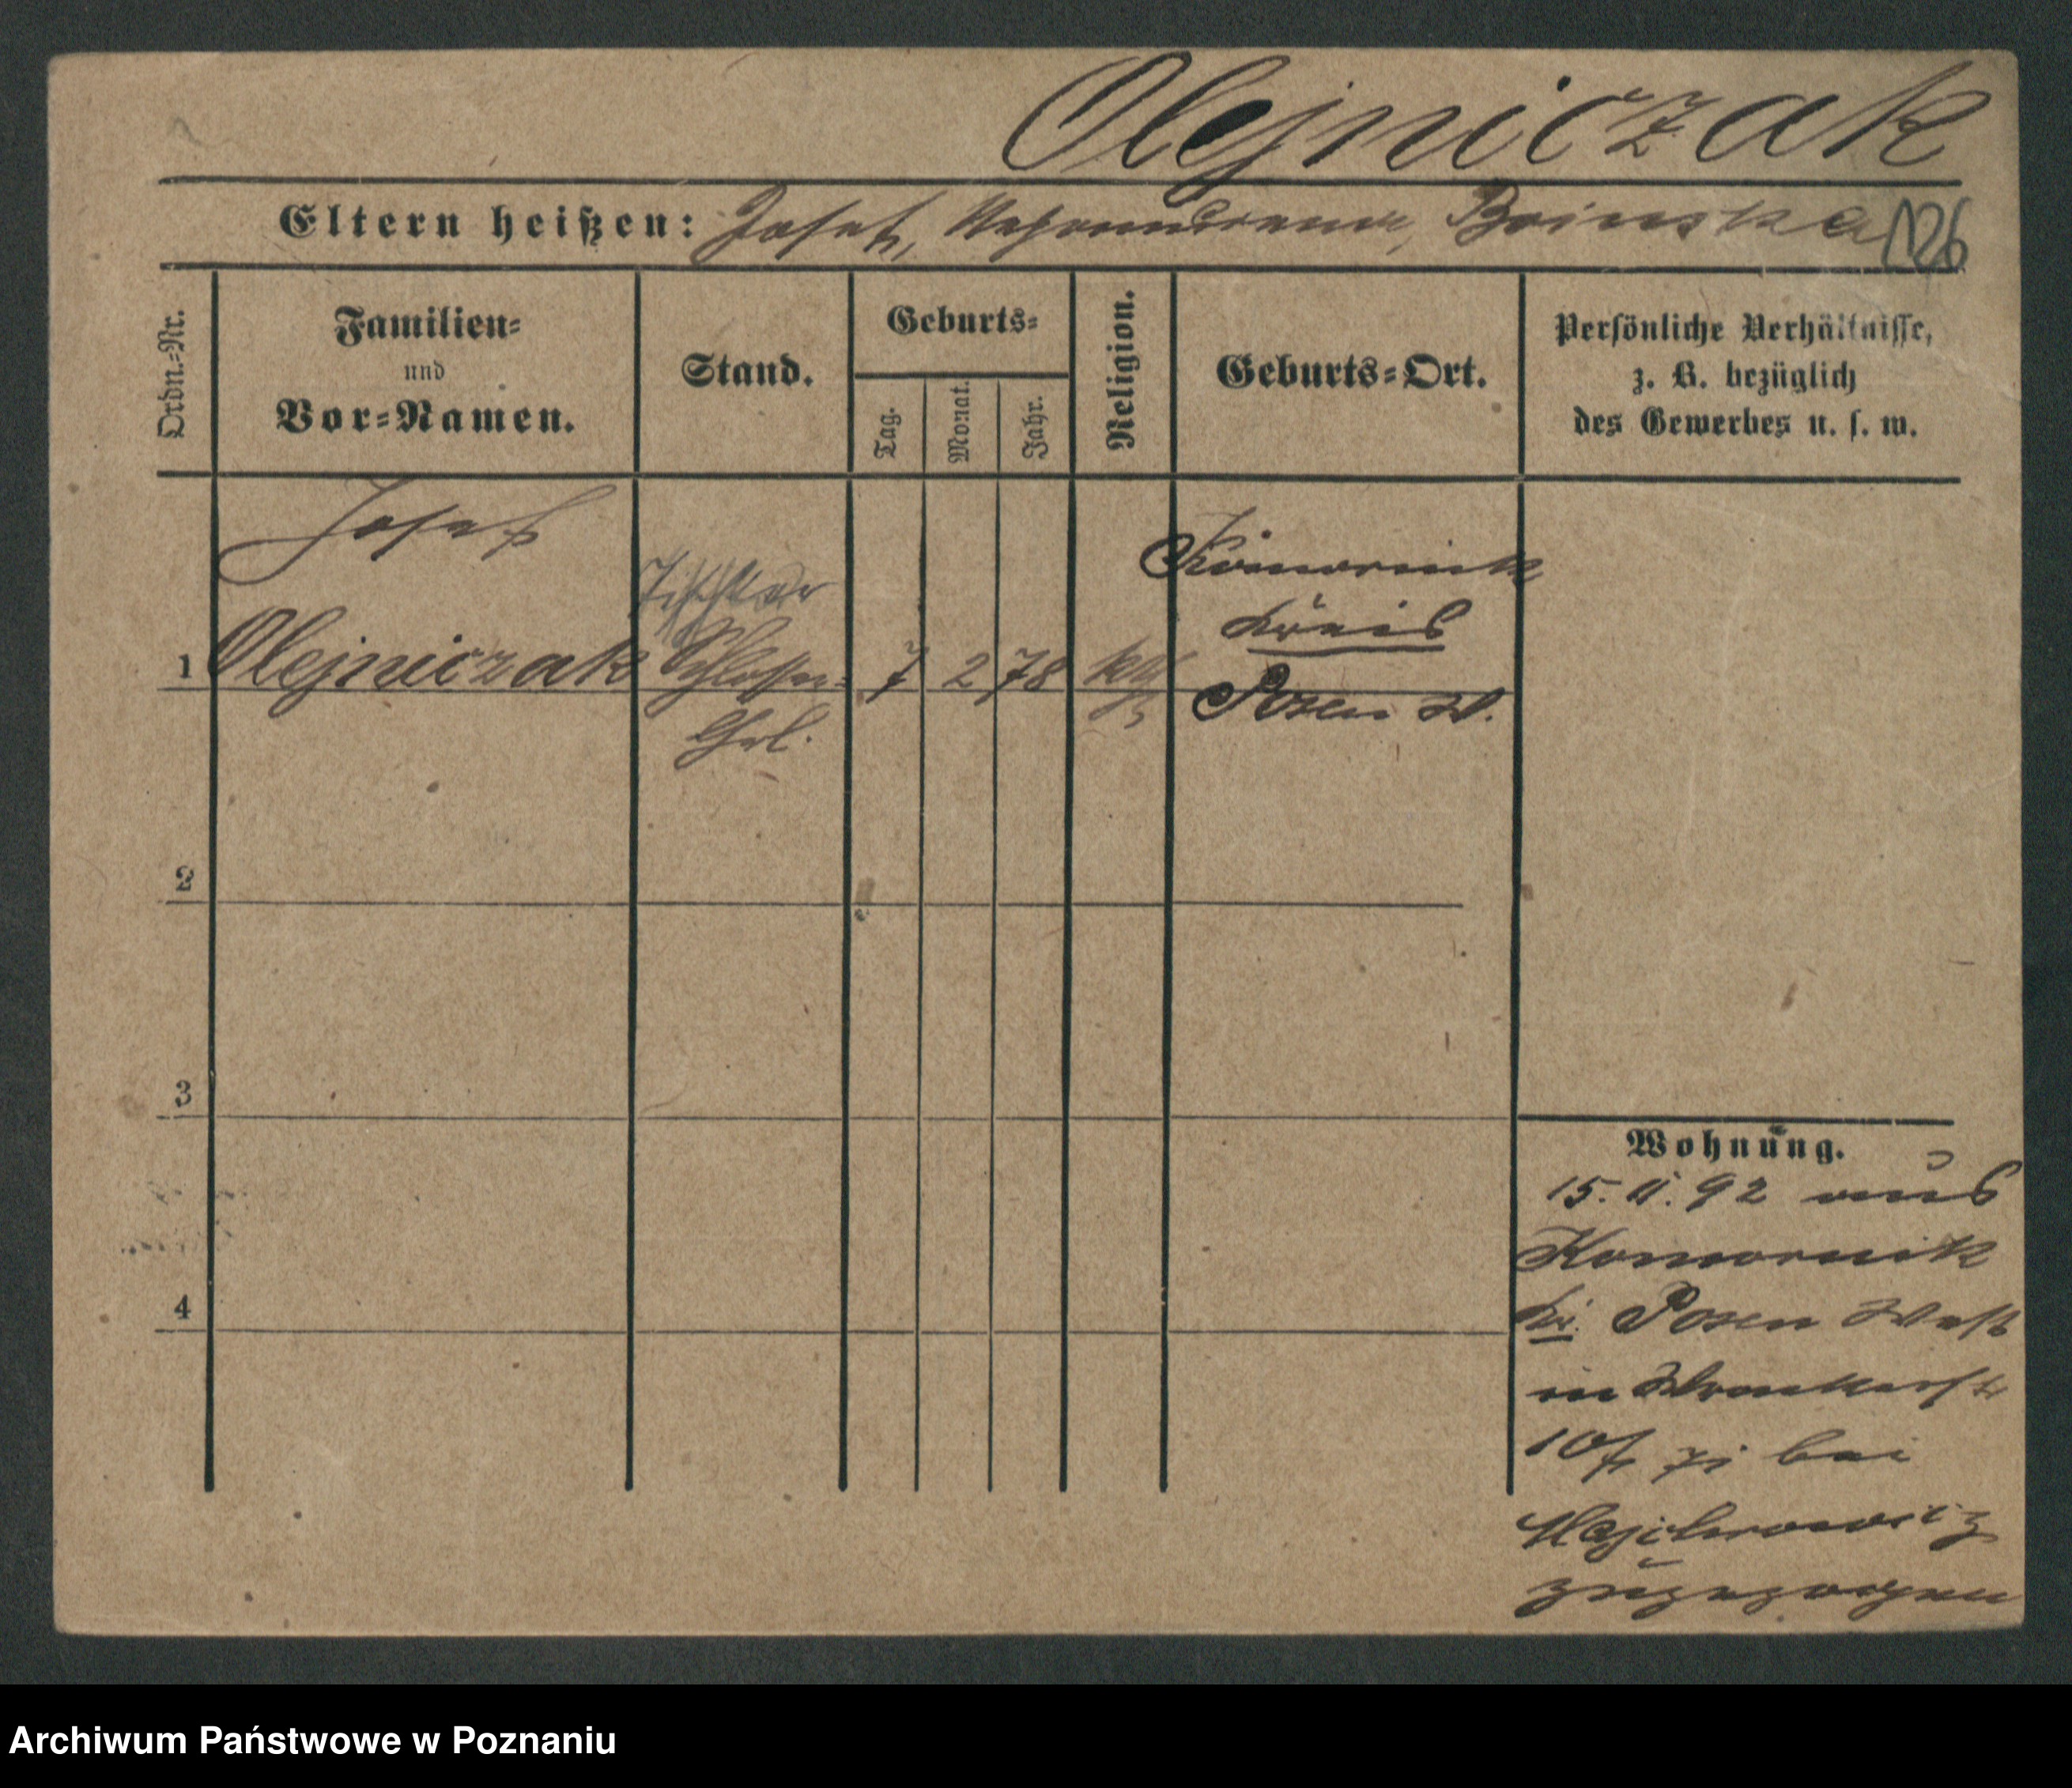 Olejniczak
Eltern heißen: Josef, Nepomucena, Boinska
126
Ordn.=Nr.
Familien=
und
Vor=Namen.
Stand.
Geburts=
Tag.
Monat.
Jahr.
Religion.
Geburts=Ort.
Persönliche Verhältnisse,
z. B. bezüglich
des Gewerbes u. s. w.
Josef
Tischler
1 Olejniczak Schlosser= 7 2 78 kth
Komornik
Kreis
Posen W.
2
3
4
Wohnung.
15. 11. 92 aus
Komornik
Kr. Posen West
in Wronkerstr
10/ bei
zugezogen
Archiwum Państwowe w Poznaniu